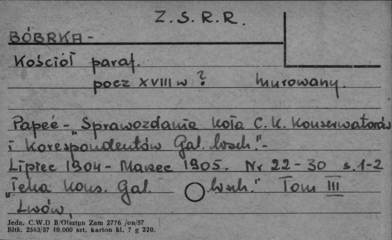 Z.S.R.R.
BÓBRKA-
Kościół paraf.
pocz XVIII w ? murowany.
Papeé - "Sprawozdanie Koła C.K. Konserwatorów
i Korespondentów Gal. wsch." -
Lipiec 1904 - Marzec 1905. Nr 22-30 s. 1-2
"Teka Kons. Gal. wsch." Tom III
Lwów,
Jedn. C.W.D B/Olsztyn Zam 2776 /os/57
Bltk. 2563/57 10.000 szt. karton kl. 7 g 220.